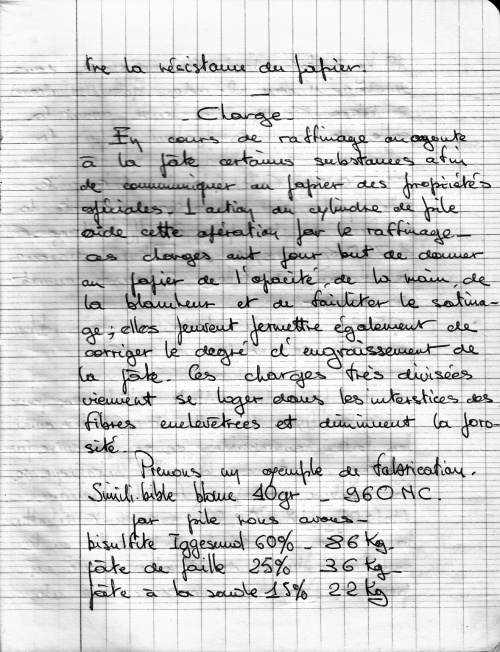 tre la résistance du papier.
- Charge -
En cours de raffinage on ajoute
à la pâte certaines substances afin
de communiquer au papier des propriétés
spéciales. L'action du cylindre de pile
aide cette opération par le raffinage -
ces charges ont pour but de donner
au papier de l'opacité, de la main, de
la blancheur et de faciliter le satina-
ge ; elles peuvent permettre également de
corriger le degré d'engraissement de
la pâte. Ces charges très divisées
viennent se loger dans les interstices des
fibres enchevêtrées et diminuent la poro-
sité.
Prenons un exemple de fabrication.
Simili.bible blanc 40gr - 960 NC.
par pile nous avons -
bisulfite Iggesund 60% - 86 Kg -
pâte de paille 25% 36 Kg -
pâte à la soude 15% 22 Kg